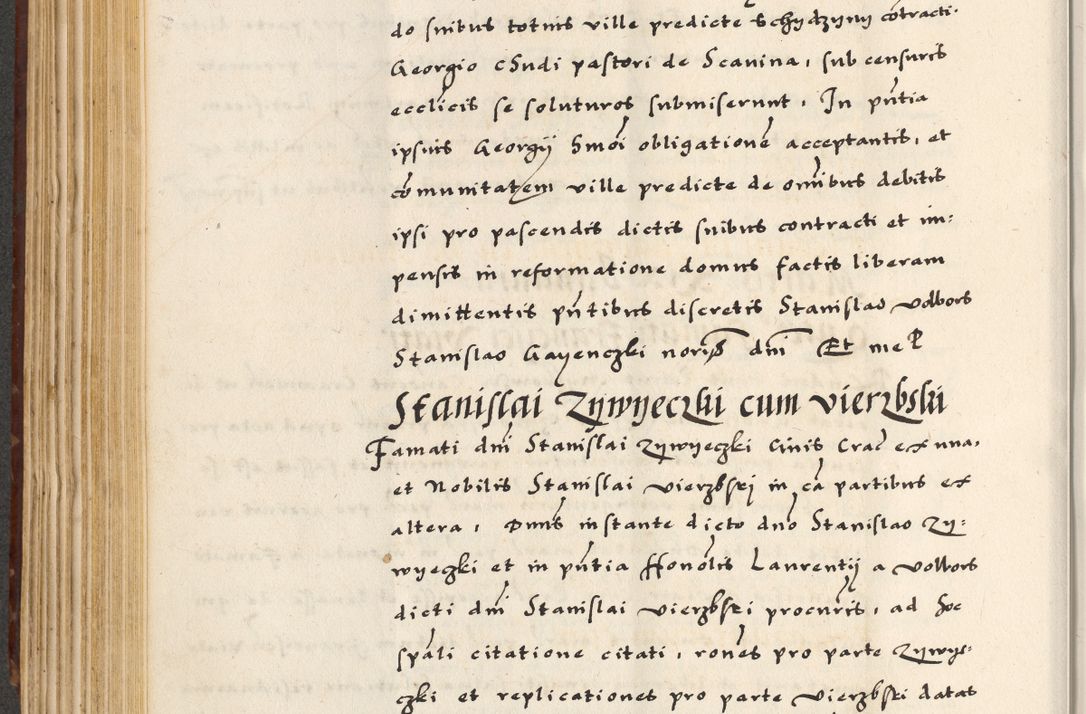 do suitus totius ville predicte Schydzyny cōtracti
Georgio Chudi pastori de Scavina, sub censuris
ecclīcis se soluturos submiserunt, In pn̄tia
ipsius Georgij Smōi obligationē acceptantis, et
cōmunitatem ville predicte de om̄ibus debitis
ipsi pro pascendis dictis suibus contracti et im:
pensis in reformatione domus factis liberam
dimittentis pn̄tibus discretis Stanislao Volbors
Stanislao Gayenczki noriis dn̄i Et me P
Stanislai Zywyeczki cum Vierzbski
Famati dn̄i Stanislai Zywyeczki Civis Crac̄ ex una,
et Nobilis Stanislai Vierzbskj in cā partibus ex
altera, Dn̄us instante dicto dn̄o Stanislao Zy:
wyeczki et in pn̄tia Honōlis Laurentij a Volbors
dicti dn̄i Stanislai Vierzbski procur̄is, ad hoc
sp̄ali citatione citati, rōnes pro parte Zywye:
czki et replicationes pro parte Vierzbski datas